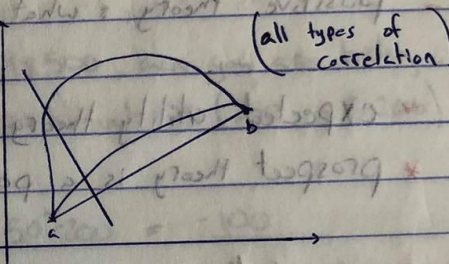 (all types of
correlation)
b
a